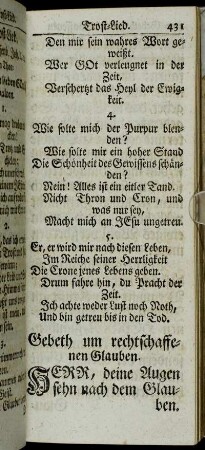 Trost-Lied. 431
Den mir sein wahres Wort ge-
weißt.
Wer GOtt verleugnet in der
Zeit,
Verschertzt das Heyl der Ewig-
keit.
4.
Wie solte mich der Purpur blen-
den?
Wie solte mir ein hoher Stand
Die Schönheit des Gewissens schän-
den?
Nein! Alles ist ein eitler Tand.
Nicht Thron und Cron, und
was nur sey,
Macht mich an JEsu ungetreu.
5.
Er, er wird mir nach diesen Leben,
Im Reiche seiner Herrligkeit
Die Crone jenes Lebens geben.
Drum fahre hin, du Pracht der
Zeit.
Ich achte weder Lust noch Noth,
Und bin getreu bis in den Tod.
Gebeth um rechtschaffe-
nen Glauben.
HERR, deine Augen
sehn nach dem Glau-
ben.